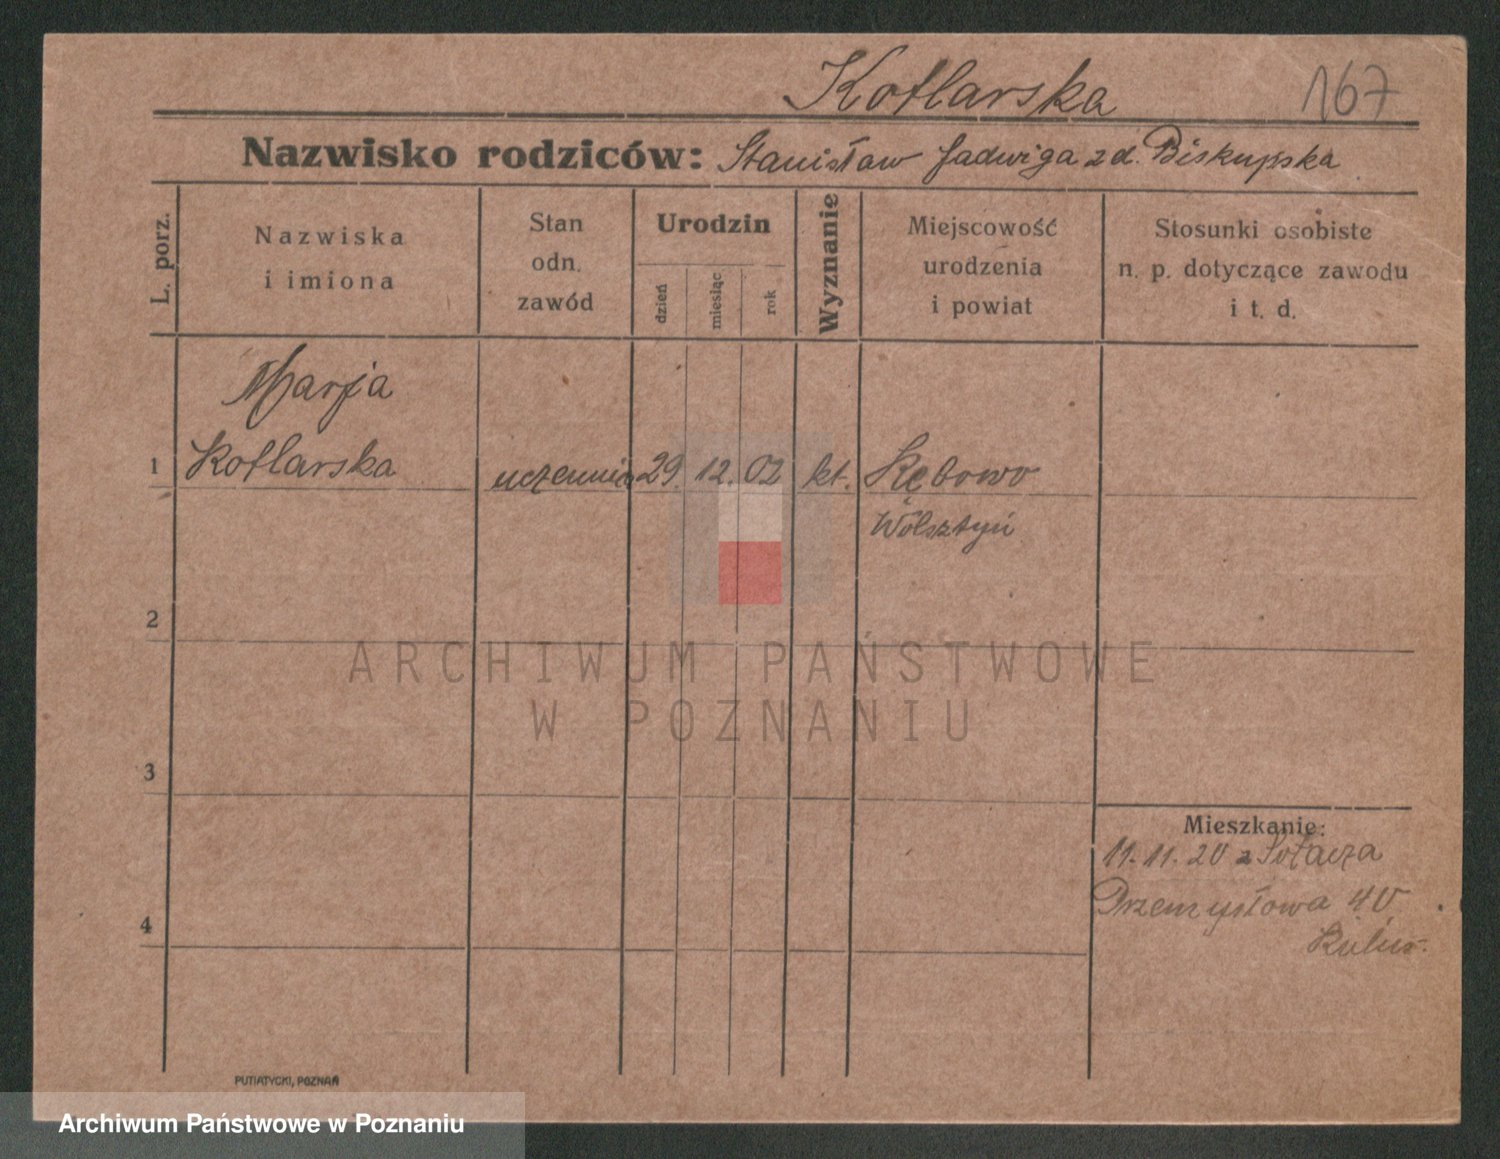 Kotlarska 167
Nazwisko rodziców: Stanisław Jadwiga zd. Biskupska
L. porz.
Nazwiska
i imiona
Stan
odn.
zawód
Urodzin
dzień
miesiąc
rok
Wyznanie
Miejscowość
urodzenia
i powiat
Stosunki osobiste
n. p. dotyczące zawodu
i t. d.
Marja
1 Kotlarska uczennica 29. 12. 02 kt. Kębowo
Wolsztyń
2
ARCHIWUM PAŃSTWOWE
W POZNANIU
3
Mieszkanie:
11. 11. 20 z Sołacza
Przemysłowa 40
4
PUTIATYCKI, POZNAŃ
Archiwum Państwowe w Poznaniu